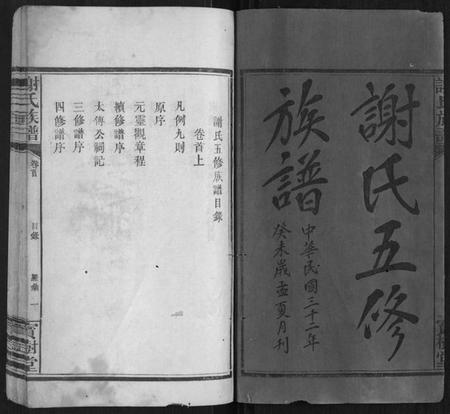 謝氏五修
族譜
中華民國三十二年
癸未歲孟夏月刊
寶樹堂
謝氏五修族譜目錄
卷首上
凡例九則
原序
元靈觀章程
禎修譜序
太傅公祠記
三修譜序
四修譜序
謝氏族譜
卷首
目錄
一
寶樹堂